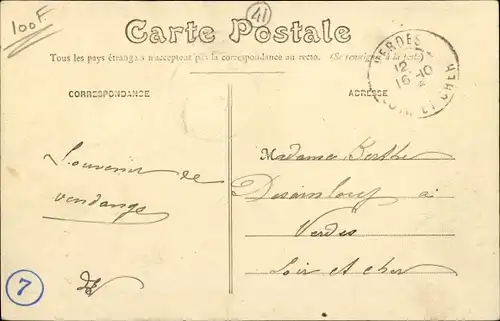 100F.
41
Carte Postale
Tous les pays étrangers n'acceptent pas la correspondance au recto. (Se renseigner à la poste)
VERDES
12
16-10
LOIR ET CHER
CORRESPONDANCE
ADRESSE
Souvenir de
vendange
Madame Berthe
à
Verdes
Loir et cher
7